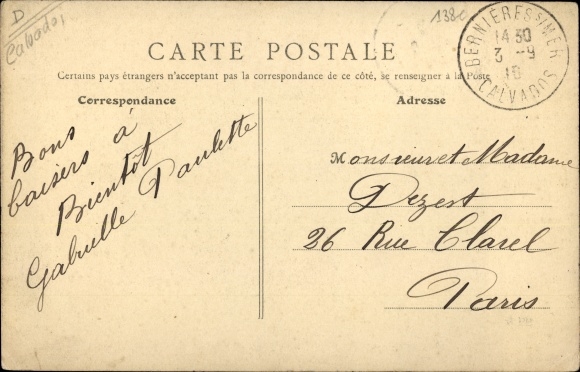 D
Calvados
138c
BERNIÈRES S/ MER
14 30
3 -9
10
CALVADOS
CARTE POSTALE
Certains pays étrangers n'acceptant pas la correspondance de ce côté, se renseigner à la Poste
Correspondance
Bons
baisers à
Bientôt
Gabrielle Paulette
Adresse
Monsieur et Madame
Dezert
26 Rue Clarel
Paris